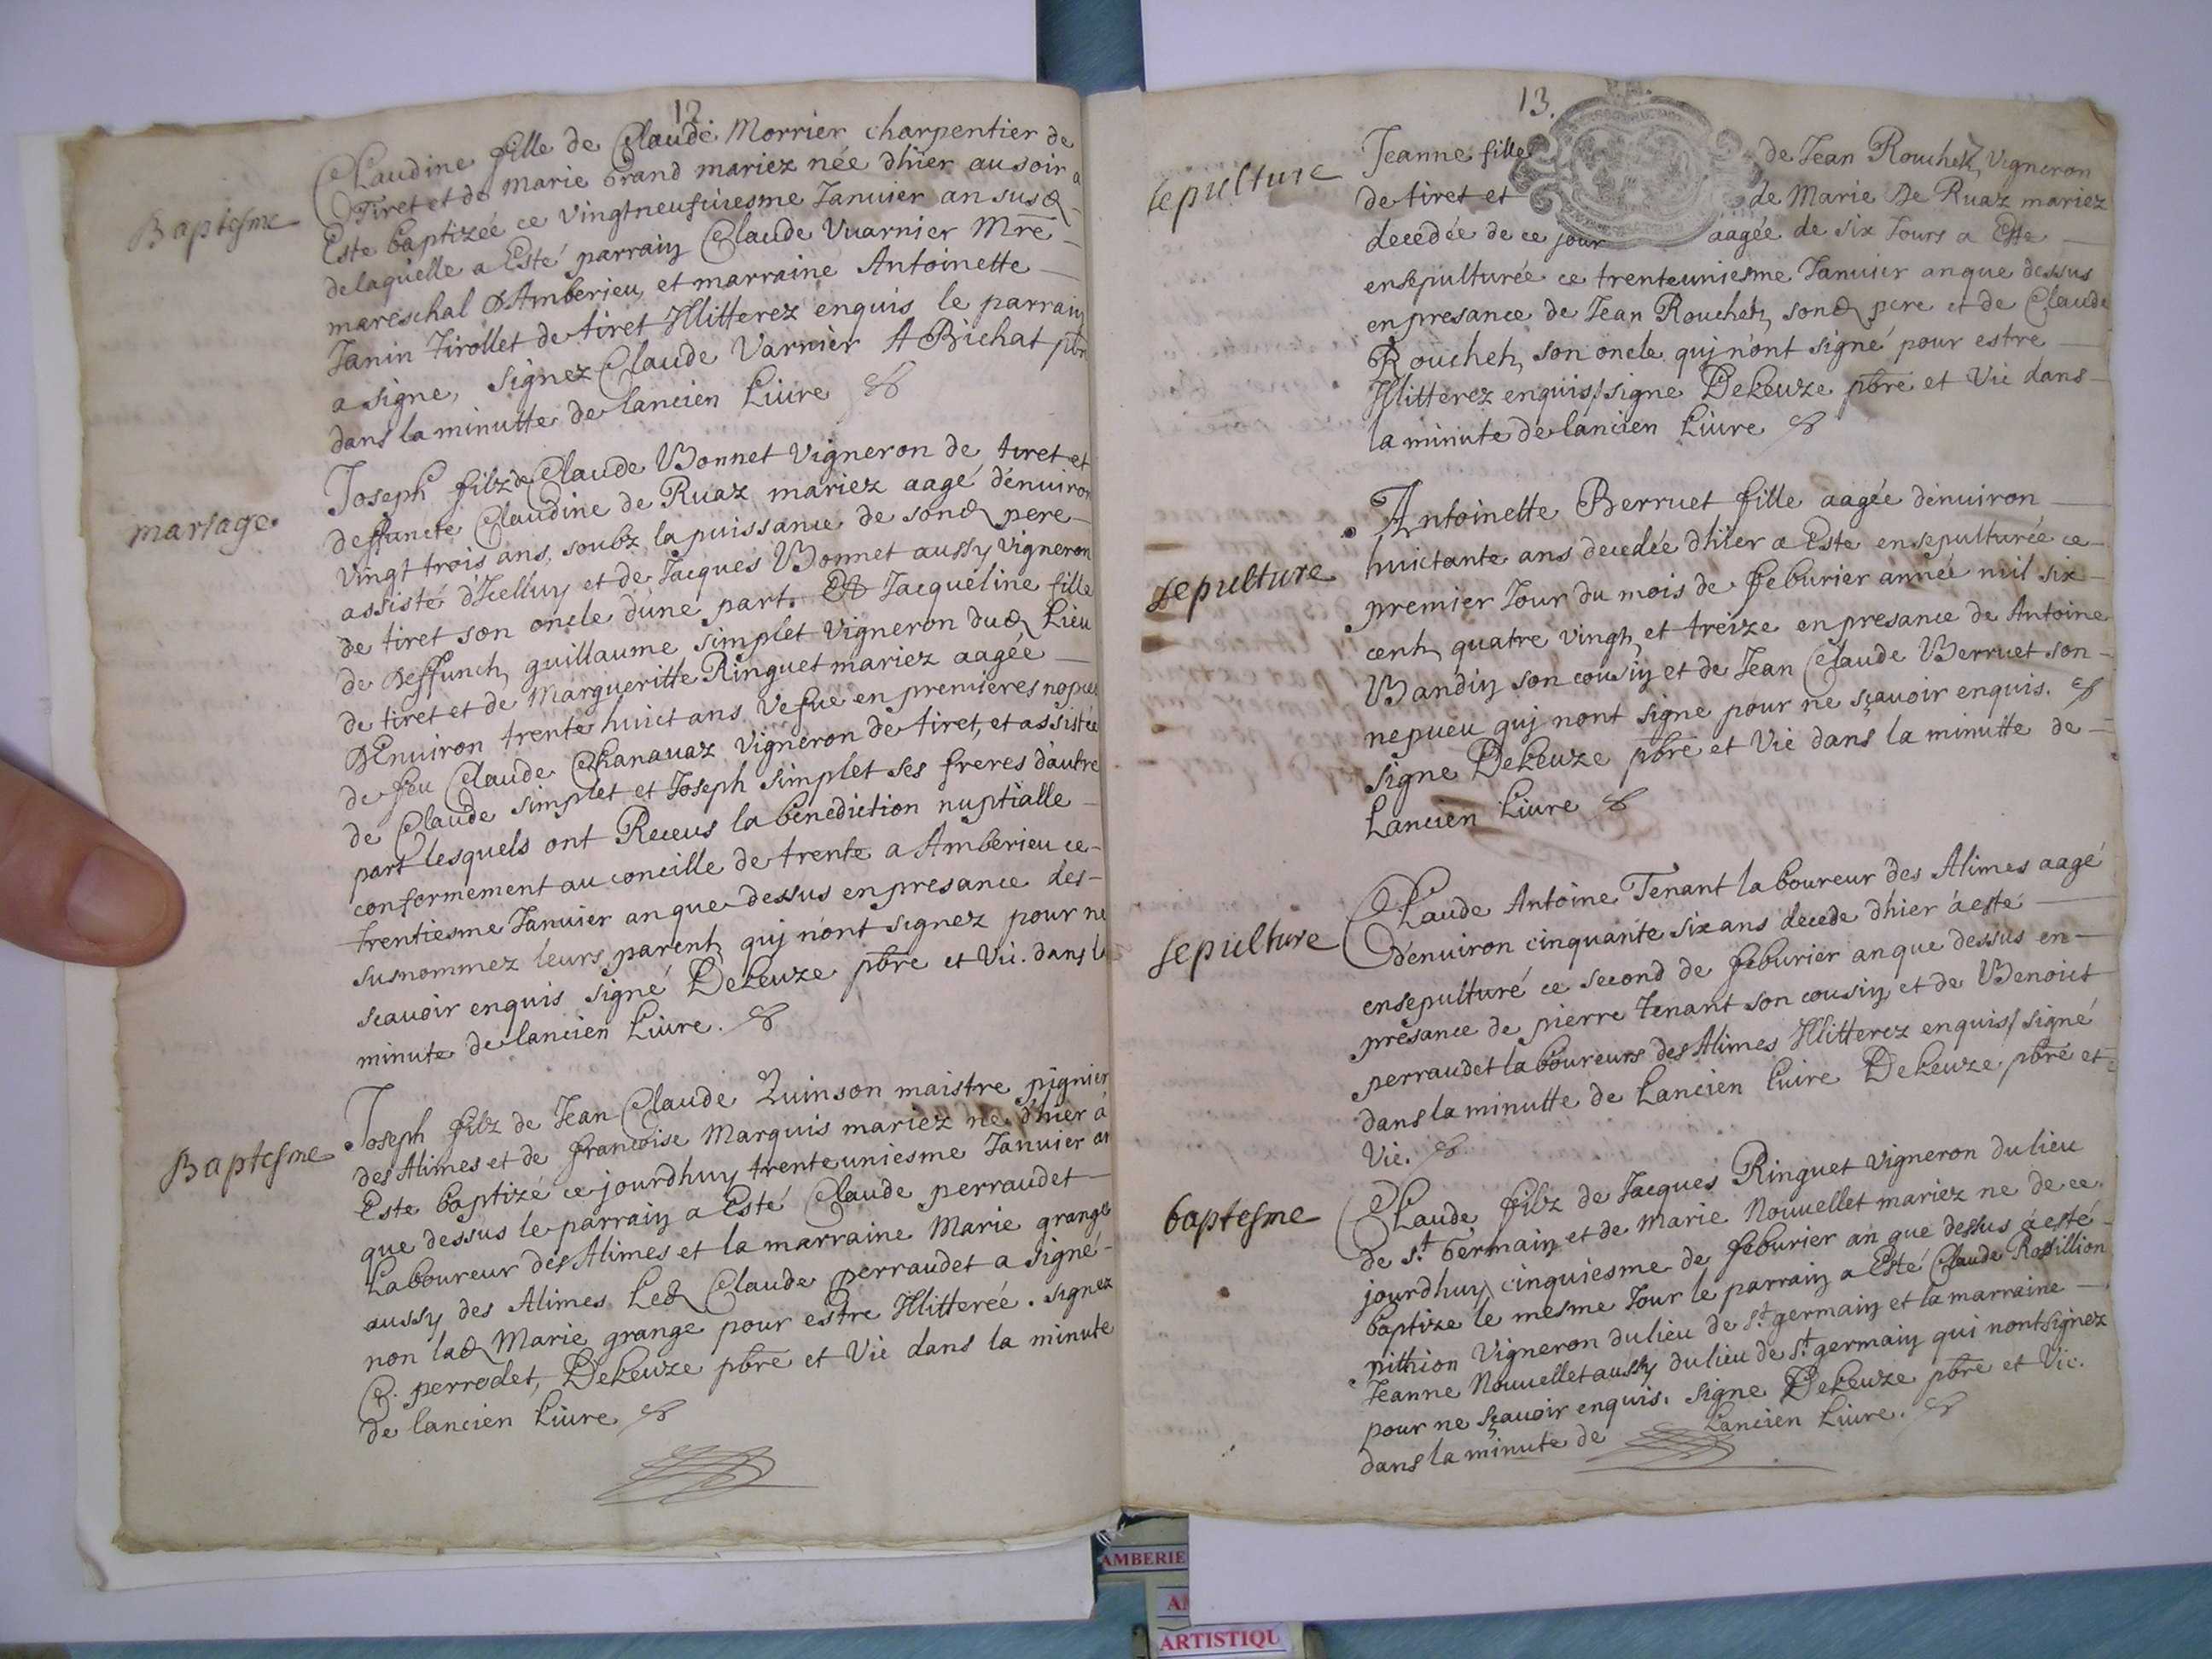 12
Baptesme
Claudine fille de Claude Morrier charpentier de
Tiret et de Marie Grand mariez née dhier au soir a
Este baptizée ce vingtneufuiesme Januier an susd
delaquelle a Esté parrain Claude Vuarnier Mre
mareschal d'Amberieu, et marraine Antoinette
Janin Tirollet de tiret Illitterez enquis le parrain
a signe, signez Claude Varnier A Bichat pbre
dans la minutte de lancien Liure
mariage.
Joseph filz de Claude Bonnet Vigneron de tiret et
deffuncte Claudine de Ruaz mariez aagé dénuiron
Vingt trois ans, soubz la puissance de sond pere
assisté d'Icelluy et de Jacques Bonnet aussy Vigneron
de tiret son oncle dúne part. Et Jacqueline fille
de deffunct guillaume simplet Vigneron dud Lieu
de tiret et de Margueritte Ringuet mariez aagée
dEnuiron trente huict ans Vefue en premieres nopces
de feu Claude Chanauaz Vigneron de tiret, et assistée
de Claude simplet et Joseph simplet ses freres dáutre
part lesquels ont Receus la bénédiction nuptialle
conformement au concille de trente a Amberieu ce
trentiesme Januier an que dessus en presance des
susnommez leurs parent quj nónt signez pour ne
scauoir enquis signé DeLeuze pbre et Vic. dans la
minute de lancien Liure.
Baptesme
Joseph filz de Jean Claude Zuinson maistre pignier
des Alimes et de francoise Marquis mariez né dhier á
Este baptizé ce jourdhuy trenteuniesme Januier an
que dessus le parrain a Esté Claude perraudet
Laboureur des Alimes et la marraine Marie grange
aussy des Alimes Led Claude perraudet a signé
non lad Marie grange pour estre Illitterée. signez
C. perrodet, DeLeuze pbre et Vic dans la minute
de lancien Liure
13.
sepulture
Jeanne fille de Jean Rouchet Vigneron
de tiret et de Marie De Ruaz mariez
decedée de ce jour aagée de six Jours a Esté
ensepulturée ce trenteuniesme Januier an que dessus
en presance de Jean Rouchet sond pere et de Claude
Rouchet son oncle quj nónt signé pour estre
Illitterez enquis/signe DeLeuze pbre et Vic dans
la minute de lancien Liure
sepulture
Antoinette Berruet fille aagée dénuiron
huictante ans decedée dhier a Este ensepulturée ce
premier Jour du mois de feburier année mil six
cent quatre vingt et treize en presance de Antoine
Bandin son cousin et de Jean Claude Berruet son
nepueu quj nont signe pour ne sçauoir enquis.
signe DeLeuze pbre et Vic dans la minutte de
Lancien Liure
sepulture
Claude Antoine Tenant laboureur des Alimes aagé
dénuiron cinquante six ans decede dhier á esté
ensepulturé ce second de feburier an que dessus en
presance de pierre tenant son cousin et de Benoict
perraudet laboureurs des Alimes Illitterez enquis/signé
dans la minutte de Lancien Liure DeLeuze pbre et
Vic.
baptesme
Claude filz de Jacques Ringuet vigneron du lieu
de st. Germain et de Marie Nouuellet mariez ne de ce
jourdhuy cinquiesme de feburier an que dessus á esté
baptize le mesme Jour le parrain a Esté Claude Rossillion
pithion Vigneron du lieu de st. germain et la marraine
Jeanne Nouuellet aussy du lieu de st. germain qui nont signez
pour ne sçauoir enquis. signe DeLeuze pbre et Vic.
dans la minute de Lancien Liure.
AMBERIE
ARTISTIQU